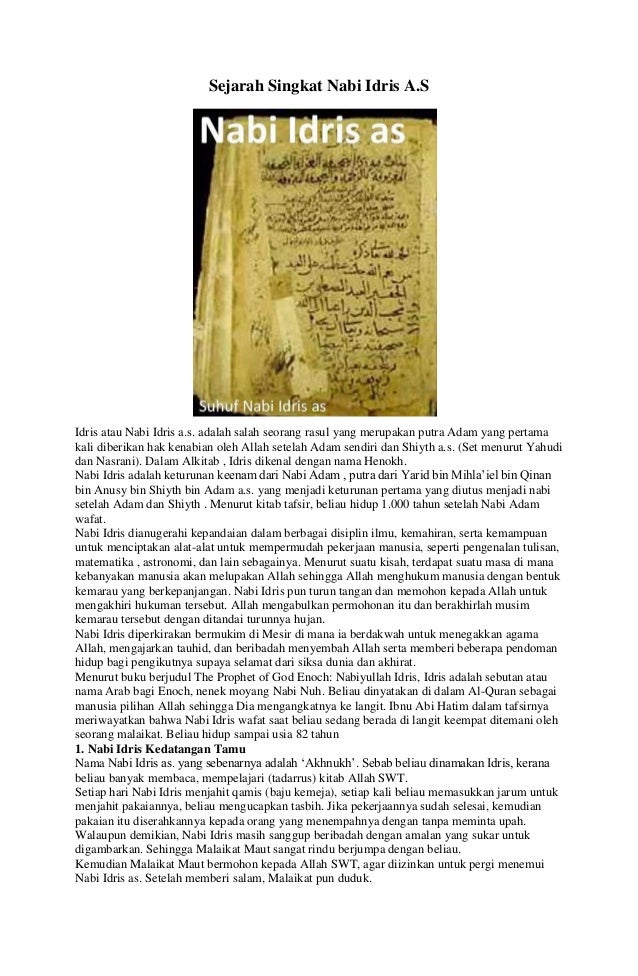 Sejarah Singkat Nabi Idris A.S
Nabi Idris as
Suhuf Nabi Idris as
Idris atau Nabi Idris a.s. adalah salah seorang rasul yang merupakan putra Adam yang pertama
kali diberikan hak kenabian oleh Allah setelah Adam sendiri dan Shiyth a.s. (Set menurut Yahudi
dan Nasrani). Dalam Alkitab , Idris dikenal dengan nama Henokh.
Nabi Idris adalah keturunan keenam dari Nabi Adam , putra dari Yarid bin Mihla’iel bin Qinan
bin Anusy bin Shiyth bin Adam a.s. yang menjadi keturunan pertama yang diutus menjadi nabi
setelah Adam dan Shiyth . Menurut kitab tafsir, beliau hidup 1.000 tahun setelah Nabi Adam
wafat.
Nabi Idris dianugerahi kepandaian dalam berbagai disiplin ilmu, kemahiran, serta kemampuan
untuk menciptakan alat-alat untuk mempermudah pekerjaan manusia, seperti pengenalan tulisan,
matematika , astronomi, dan lain sebagainya. Menurut suatu kisah, terdapat suatu masa di mana
kebanyakan manusia akan melupakan Allah sehingga Allah menghukum manusia dengan bentuk
kemarau yang berkepanjangan. Nabi Idris pun turun tangan dan memohon kepada Allah untuk
mengakhiri hukuman tersebut. Allah mengabulkan permohonan itu dan berakhirlah musim
kemarau tersebut dengan ditandai turunnya hujan.
Nabi Idris diperkirakan bermukim di Mesir di mana ia berdakwah untuk menegakkan agama
Allah, mengajarkan tauhid, dan beribadah menyembah Allah serta memberi beberapa pendoman
hidup bagi pengikutnya supaya selamat dari siksa dunia dan akhirat.
Menurut buku berjudul The Prophet of God Enoch: Nabiyullah Idris, Idris adalah sebutan atau
nama Arab bagi Enoch, nenek moyang Nabi Nuh. Beliau dinyatakan di dalam Al-Quran sebagai
manusia pilihan Allah sehingga Dia mengangkatnya ke langit. Ibnu Abi Hatim dalam tafsirnya
meriwayatkan bahwa Nabi Idris wafat saat beliau sedang berada di langit keempat ditemani oleh
seorang malaikat. Beliau hidup sampai usia 82 tahun
1. Nabi Idris Kedatangan Tamu
Nama Nabi Idris as. yang sebenarnya adalah ‘Akhnukh’. Sebab beliau dinamakan Idris, kerana
beliau banyak membaca, mempelajari (tadarrus) kitab Allah SWT.
Setiap hari Nabi Idris menjahit qamis (baju kemeja), setiap kali beliau memasukkan jarum untuk
menjahit pakaiannya, beliau mengucapkan tasbih. Jika pekerjaannya sudah selesai, kemudian
pakaian itu diserahkannya kepada orang yang menempahnya dengan tanpa meminta upah.
Walaupun demikian, Nabi Idris masih sanggup beribadah dengan amalan yang sukar untuk
digambarkan. Sehingga Malaikat Maut sangat rindu berjumpa dengan beliau.
Kemudian Malaikat Maut bermohon kepada Allah SWT, agar diizinkan untuk pergi menemui
Nabi Idris as. Setelah memberi salam, Malaikat pun duduk.